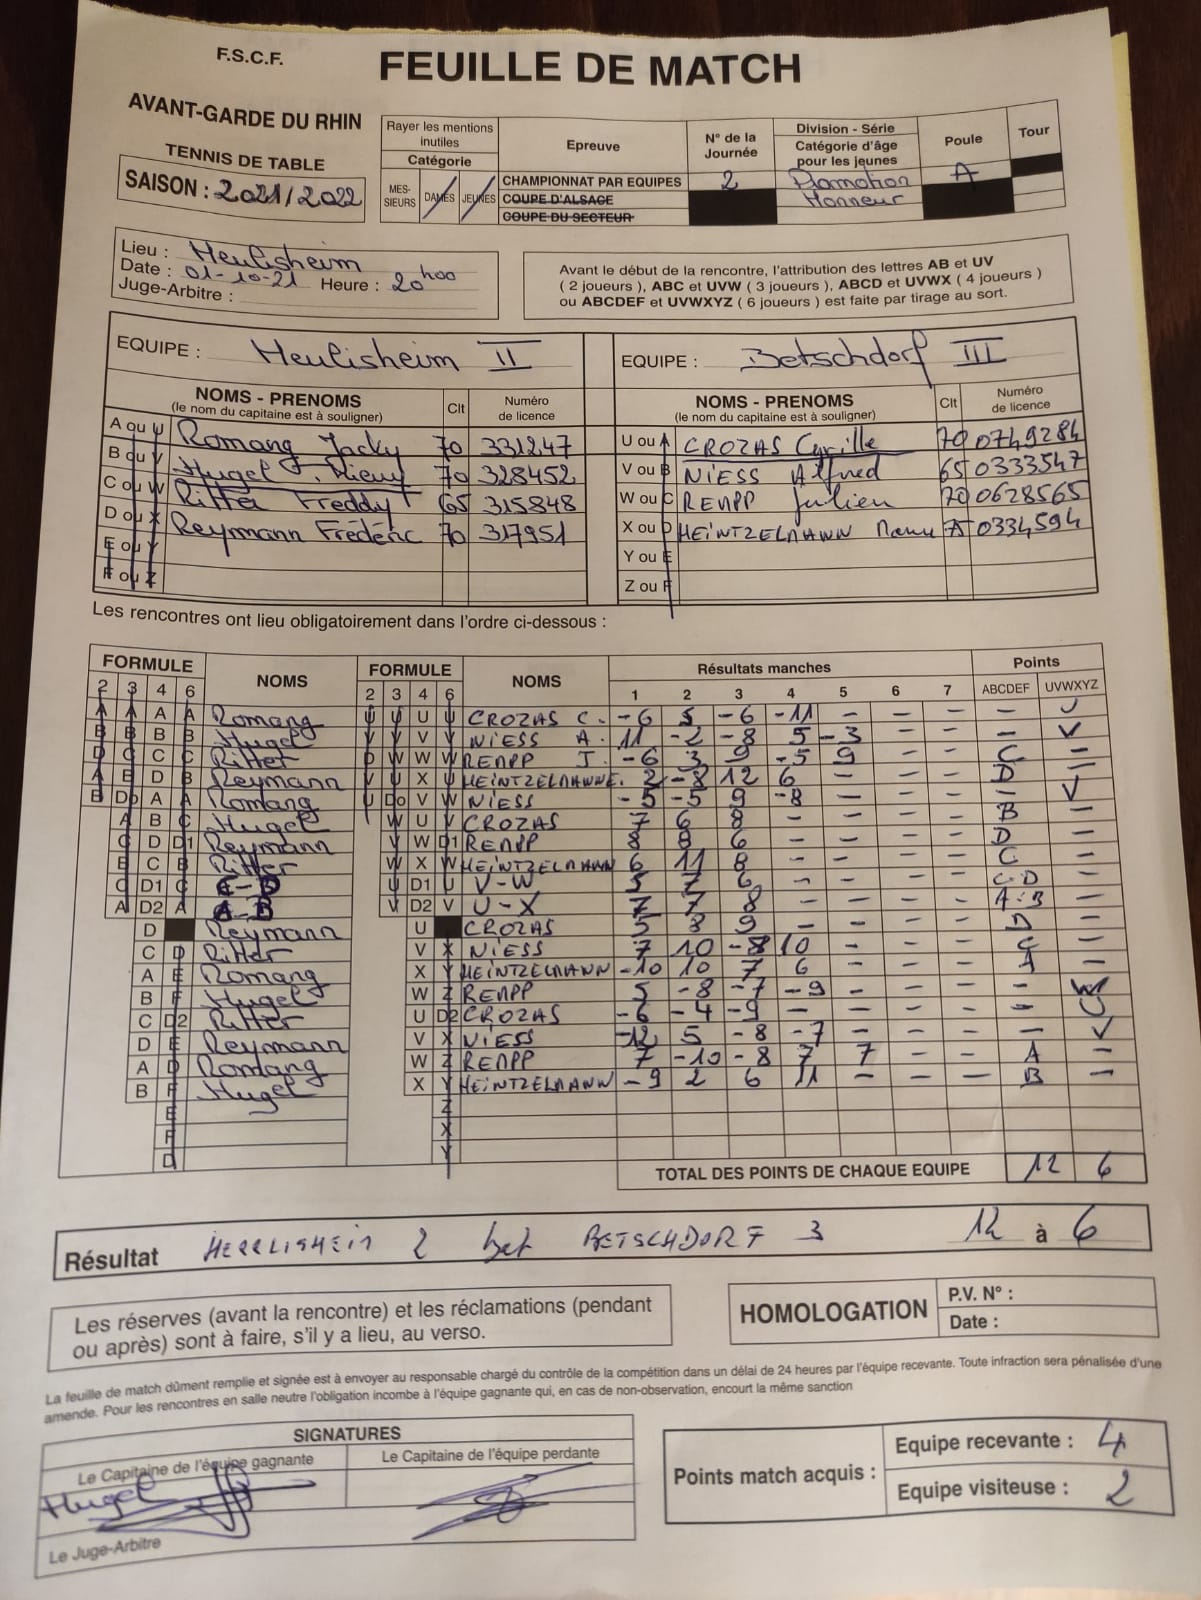 F.S.C.F.
FEUILLE DE MATCH
AVANT-GARDE DU RHIN
TENNIS DE TABLE
SAISON : 2021/2022
Rayer les mentions inutiles
Catégorie
MES-SIEURS DAMES JEUNES
Epreuve
CHAMPIONNAT PAR EQUIPES
COUPE D'ALSAGE
COUPE DU SECTEUR
N° de la Journée
2
Division - Série
Catégorie d'âge pour les jeunes
Promotion
Honneur
Poule
A
Tour
Lieu : Herrlisheim
Date : 01-10-21 Heure : 20h00
Juge-Arbitre :
Avant le début de la rencontre, l'attribution des lettres AB et UV
( 2 joueurs ), ABC et UVW ( 3 joueurs ), ABCD et UVWX ( 4 joueurs )
ou ABCDEF et UVWXYZ ( 6 joueurs ) est faite par tirage au sort.
EQUIPE : Herrlisheim II
NOMS - PRENOMS Clt Numéro de licence
(le nom du capitaine est à souligner)
A ou U Romang Jacky 70 331247
B ou V Hugel 70 328452
C ou W Ritter Freddy 65 315848
D ou X Reymann Frédéric 70 317951
E ou Y
F ou Z
EQUIPE : Betschdorf III
NOMS - PRENOMS Clt Numéro de licence
(le nom du capitaine est à souligner)
U ou A CROZAS Cyrille 70 0749284
V ou B NIESS Alfred 65 0333547
W ou C REAPP Julien 70 0628565
X ou D HEINTZELMANN 0334594
Y ou E
Z ou F
Les rencontres ont lieu obligatoirement dans l'ordre ci-dessous :
FORMULE NOMS FORMULE NOMS Résultats manches Points
2 3 4 6 2 3 4 6 1 2 3 4 5 6 7 ABCDEF UVWXYZ
A A A A Romang U U U U CROZAS C. -6 5 -6 -11 - - - - U
B B B B Hugel V V V V NIESS A. 11 -2 -8 5 -3 - - - V
D C C C Ritter D W W W REAPP J. -6 3 9 -5 9 - - C -
A B D B Reymann V U X U HEINTZELMANN E. 2 -8 12 6 - - - D -
B Do A A Romang U Do V W NIESS -5 -5 9 -8 - - - - V
A B C Hugel W U V CROZAS 7 6 8 - - - - B -
C D D1 Reymann V W D1 REAPP 8 8 6 - - - - D -
B C B Ritter W X W HEINTZELMANN 6 11 8 - - - - C -
C D1 C C-D U D1 U V-W 5 7 6 - - - - C-D -
A D2 A A-B V D2 V U-X 7 7 8 - - - - A-B -
D Reymann U CROZAS 5 8 9 - - - - D -
C D Ritter V X NIESS 7 10 -8 10 - - - C -
A E Romang X Y HEINTZELMANN -10 10 7 6 - - - A -
B F Hugel W Z REAPP 5 -8 -7 -9 - - - - W
C D2 Ritter U D2 CROZAS -6 -4 -9 - - - - - U
D E Reymann V X NIESS -12 5 -8 -7 - - - - V
A D Romang W Z REAPP 7 -10 -8 7 7 - - A -
B F Hugel X Y HEINTZELMANN -9 2 6 11 - - - B -
E Z
F X
D Y
TOTAL DES POINTS DE CHAQUE EQUIPE 12 6
Résultat HERRLISHEIM 2 bat BETSCHDORF 3 12 à 6
Les réserves (avant la rencontre) et les réclamations (pendant
ou après) sont à faire, s'il y a lieu, au verso.
HOMOLOGATION
P.V. N° :
Date :
La feuille de match dûment remplie et signée est à envoyer au responsable chargé du contrôle de la compétition dans un délai de 24 heures par l'équipe recevante. Toute infraction sera pénalisée d'une
amende. Pour les rencontres en salle neutre l'obligation incombe à l'équipe gagnante qui, en cas de non-observation, encourt la même sanction
SIGNATURES
Le Capitaine de l'équipe gagnante
Le Capitaine de l'équipe perdante
Hugel
Le Juge-Arbitre
Points match acquis :
Equipe recevante : 4
Equipe visiteuse : 2